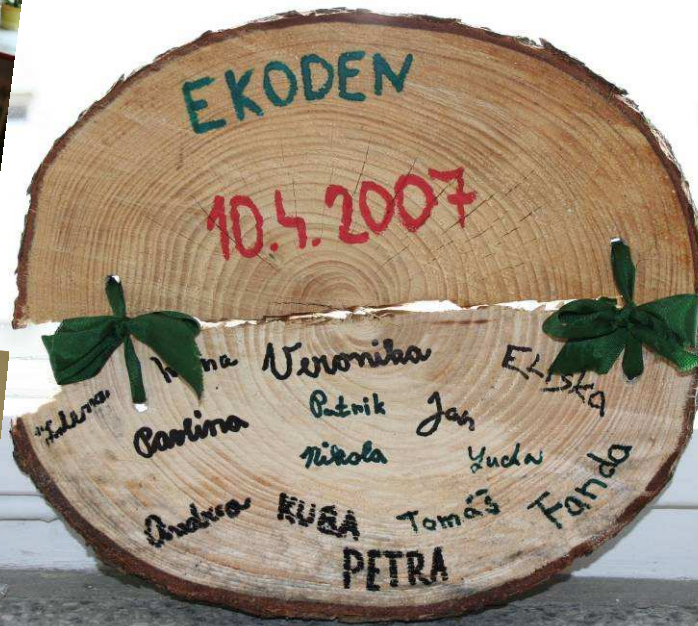 EKODEN
10.4.2007
Veronika
Eliška
Pavlina
Patrik
Jan
Nikola
Lucka
Andrea
KUBA
Tomáš
Fanda
PETRA